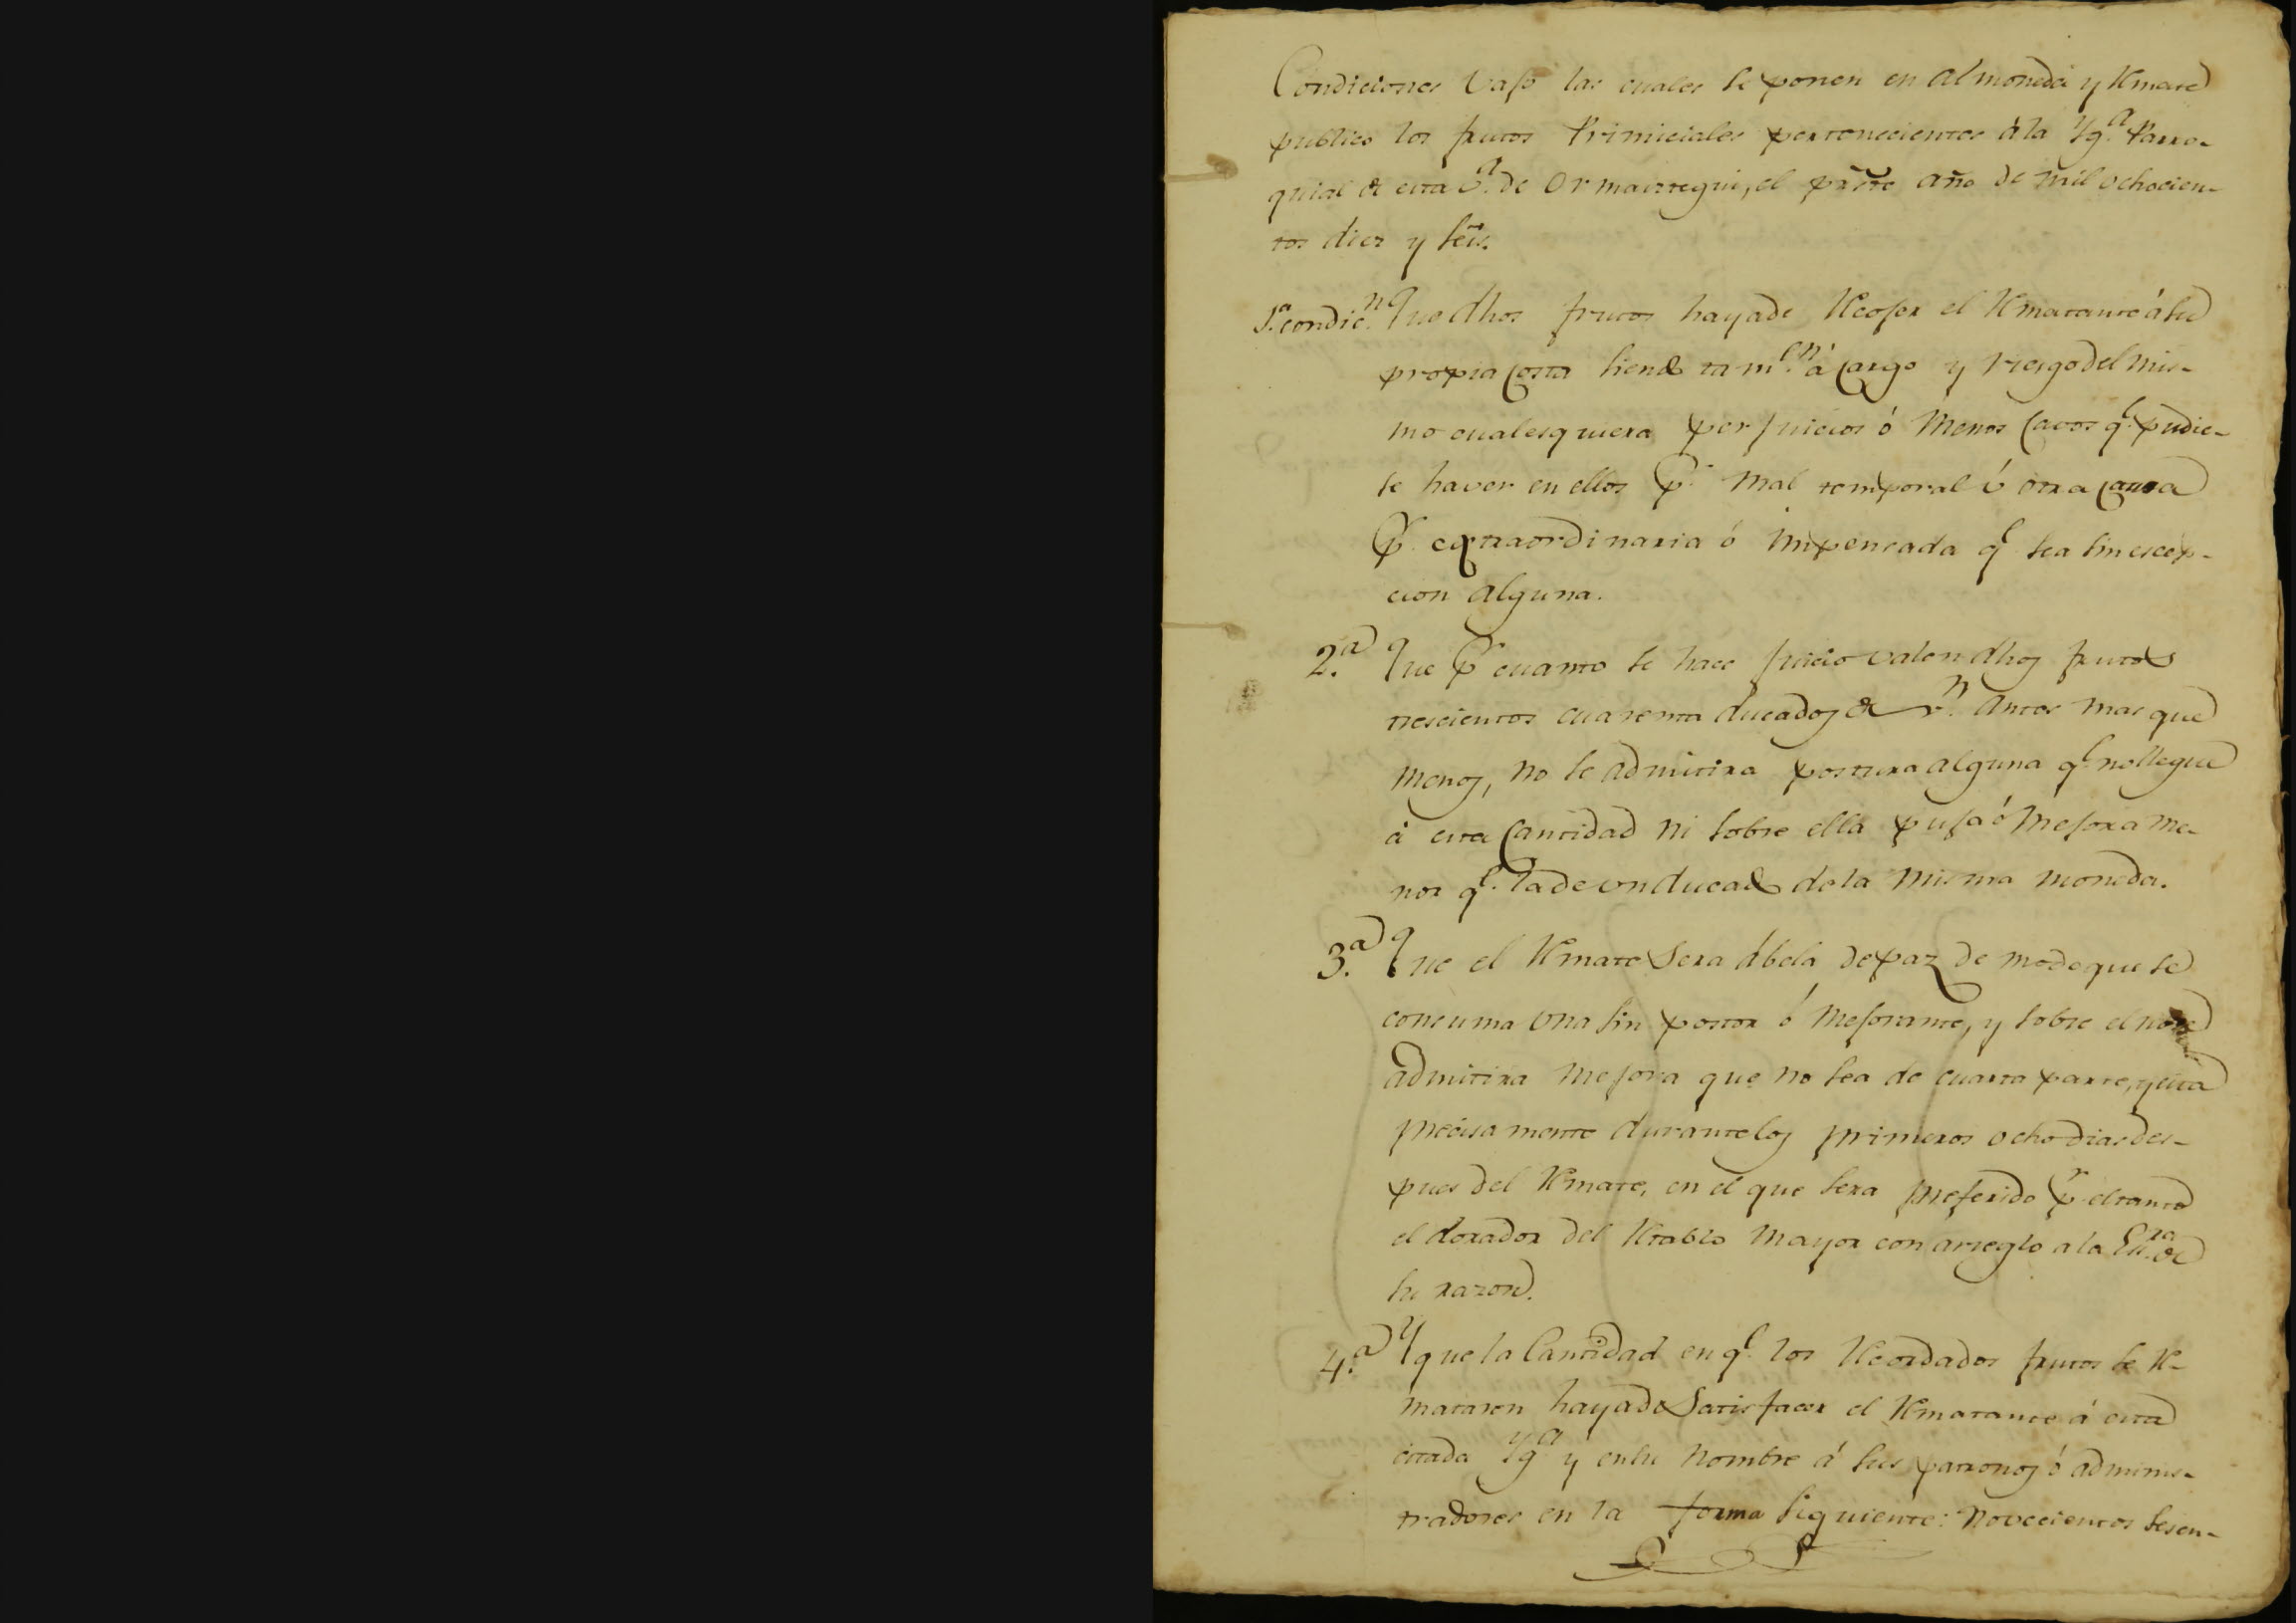 Condiciones vajo las cuales se ponen en almoneda y Remate
publico los frutos Primiciales pertenecientes á la Yg.ª Parro-
quial de esta V.ª de Ormaiztegui, el prẽte año de mil ochocien-
tos diez y seis.
1.ª condic.n Que dhos frutos haya de Recojer el Rematante á su
propia Costa siendo tam.en á Cargo y riesgo del mis-
mo cualesquiera perjuicios ó menos cavos q.e pudie-
se haver en ellos p.r mal temporal ú otra causa
p.r extraordinaria ó impensada q.e sea sin escep-
cion alguna.
2.ª Que p.r cuanto se hace juicio valen dhos frutos
trescientos cuarenta ducados de v.n antes mas que
menos, no se admitira postura alguna q.e no llegue
á esta Cantidad ni sobre ella puja ó mejora me-
nor q.e la de un ducado de la misma moneda.
3.ª Que el Remate Sera á bela de paz de modo que se
consuma una sin postor ó mejorante, y sobre el no se
admitira mejora que no sea de cuarta parte, y esta
precisamente durante los primeros ocho dias des-
pues del Remate, en el que sera preferido p.r el tanto
el dorador del Retablo mayor con arreglo a la Es.ra de
su razon.
4.ª Y que la Cantidad en q.e los Recordados frutos se Re-
mataren haya de Satisfacer el Rematante á esta
citada Yg.ª y en su nombre á sus patronos ó adminis-
tradores en la forma siguiente: novecientos sesen-